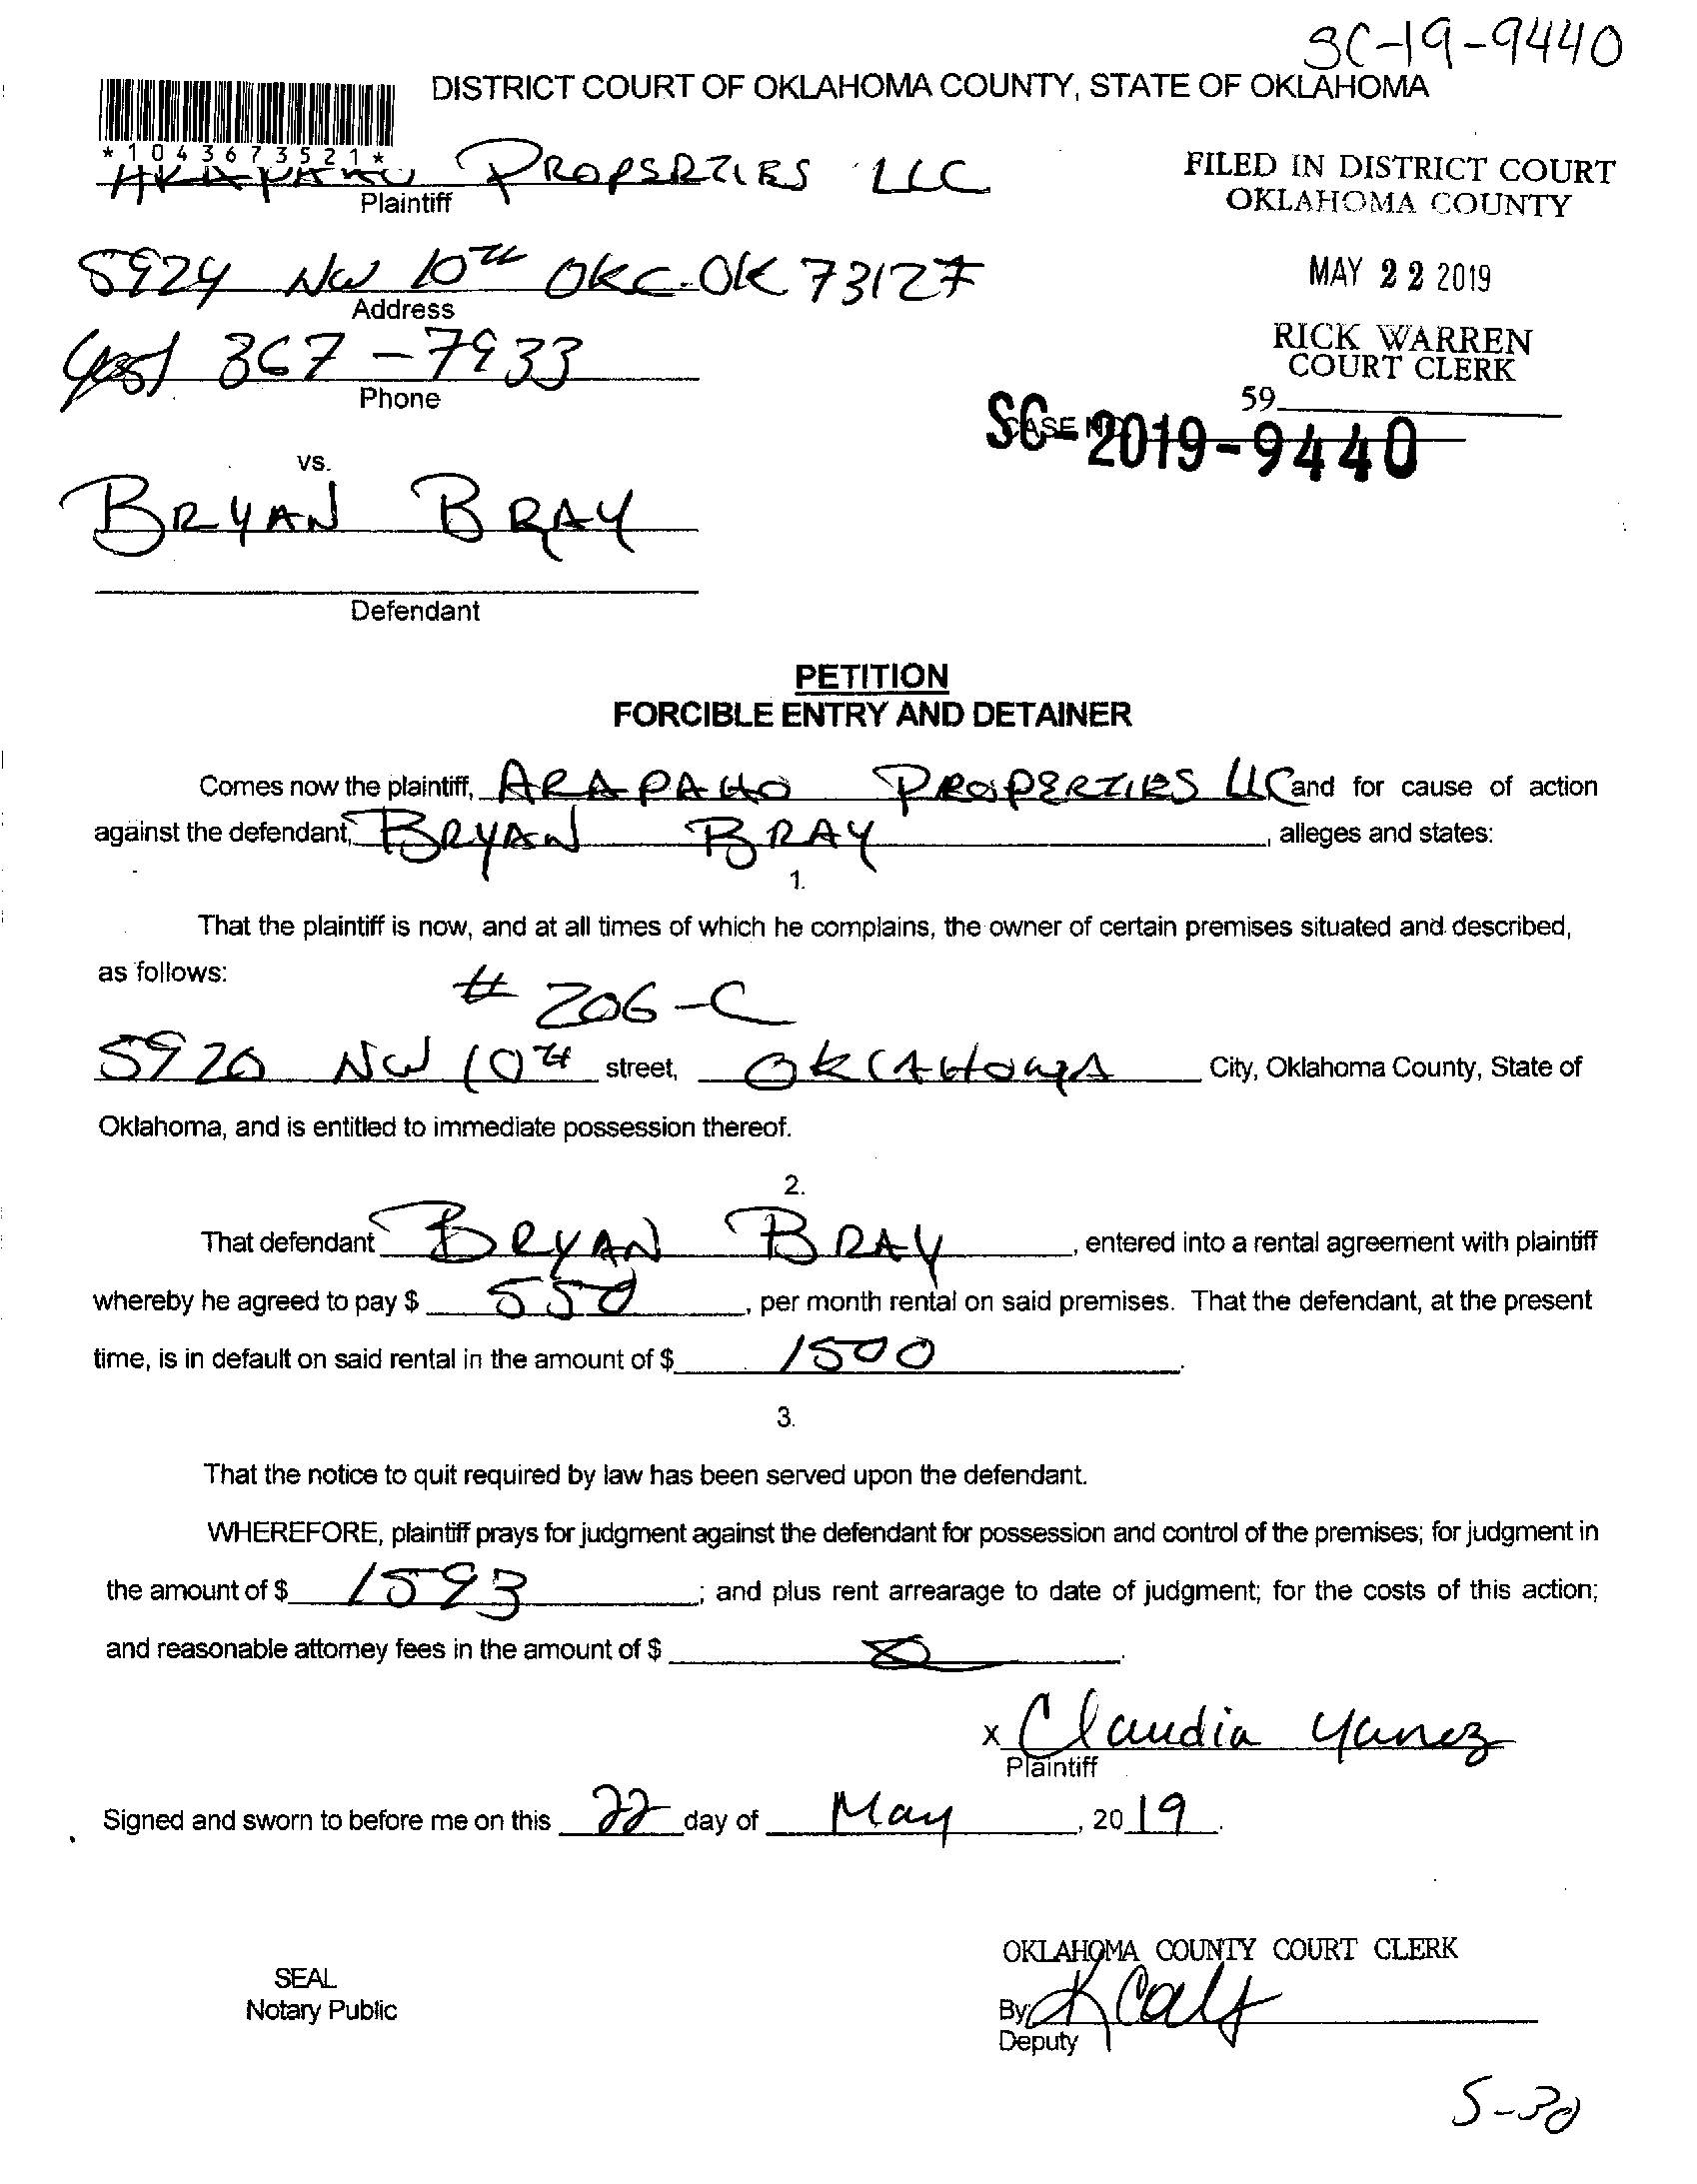 SC-19-9440
DISTRICT COURT OF OKLAHOMA COUNTY, STATE OF OKLAHOMA
*1043673521*
ARAPAHO PROPSRZIES LLC
Plaintiff
FILED IN DISTRICT COURT
OKLAHOMA COUNTY
5924 NW 10TH OKC. OK 73127
Address
MAY 22 2019
367-7933
Phone
RICK WARREN
COURT CLERK
59
CASE NO.
SC-2019-9440
vs.
BRYAN BRAY
Defendant
PETITION
FORCIBLE ENTRY AND DETAINER
Comes now the plaintiff, ARAPAHO PROPERZIES LLC and for cause of action
against the defendant, BRYAN BRAY, alleges and states:
1.
That the plaintiff is now, and at all times of which he complains, the owner of certain premises situated and described,
as follows:
# 206-C
5920 NW 10TH street, OKLAHOMA City, Oklahoma County, State of
Oklahoma, and is entitled to immediate possession thereof.
2.
That defendant BRYAN BRAY, entered into a rental agreement with plaintiff
whereby he agreed to pay $ 550, per month rental on said premises. That the defendant, at the present
time, is in default on said rental in the amount of $ 1500.
3.
That the notice to quit required by law has been served upon the defendant.
WHEREFORE, plaintiff prays for judgment against the defendant for possession and control of the premises; for judgment in
the amount of $ 1593; and plus rent arrearage to date of judgment; for the costs of this action;
and reasonable attorney fees in the amount of $
x Claudia Yanez
Plaintiff
Signed and sworn to before me on this 22 day of May, 2019.
OKLAHOMA COUNTY COURT CLERK
SEAL
Notary Public
By:
Deputy
5-30